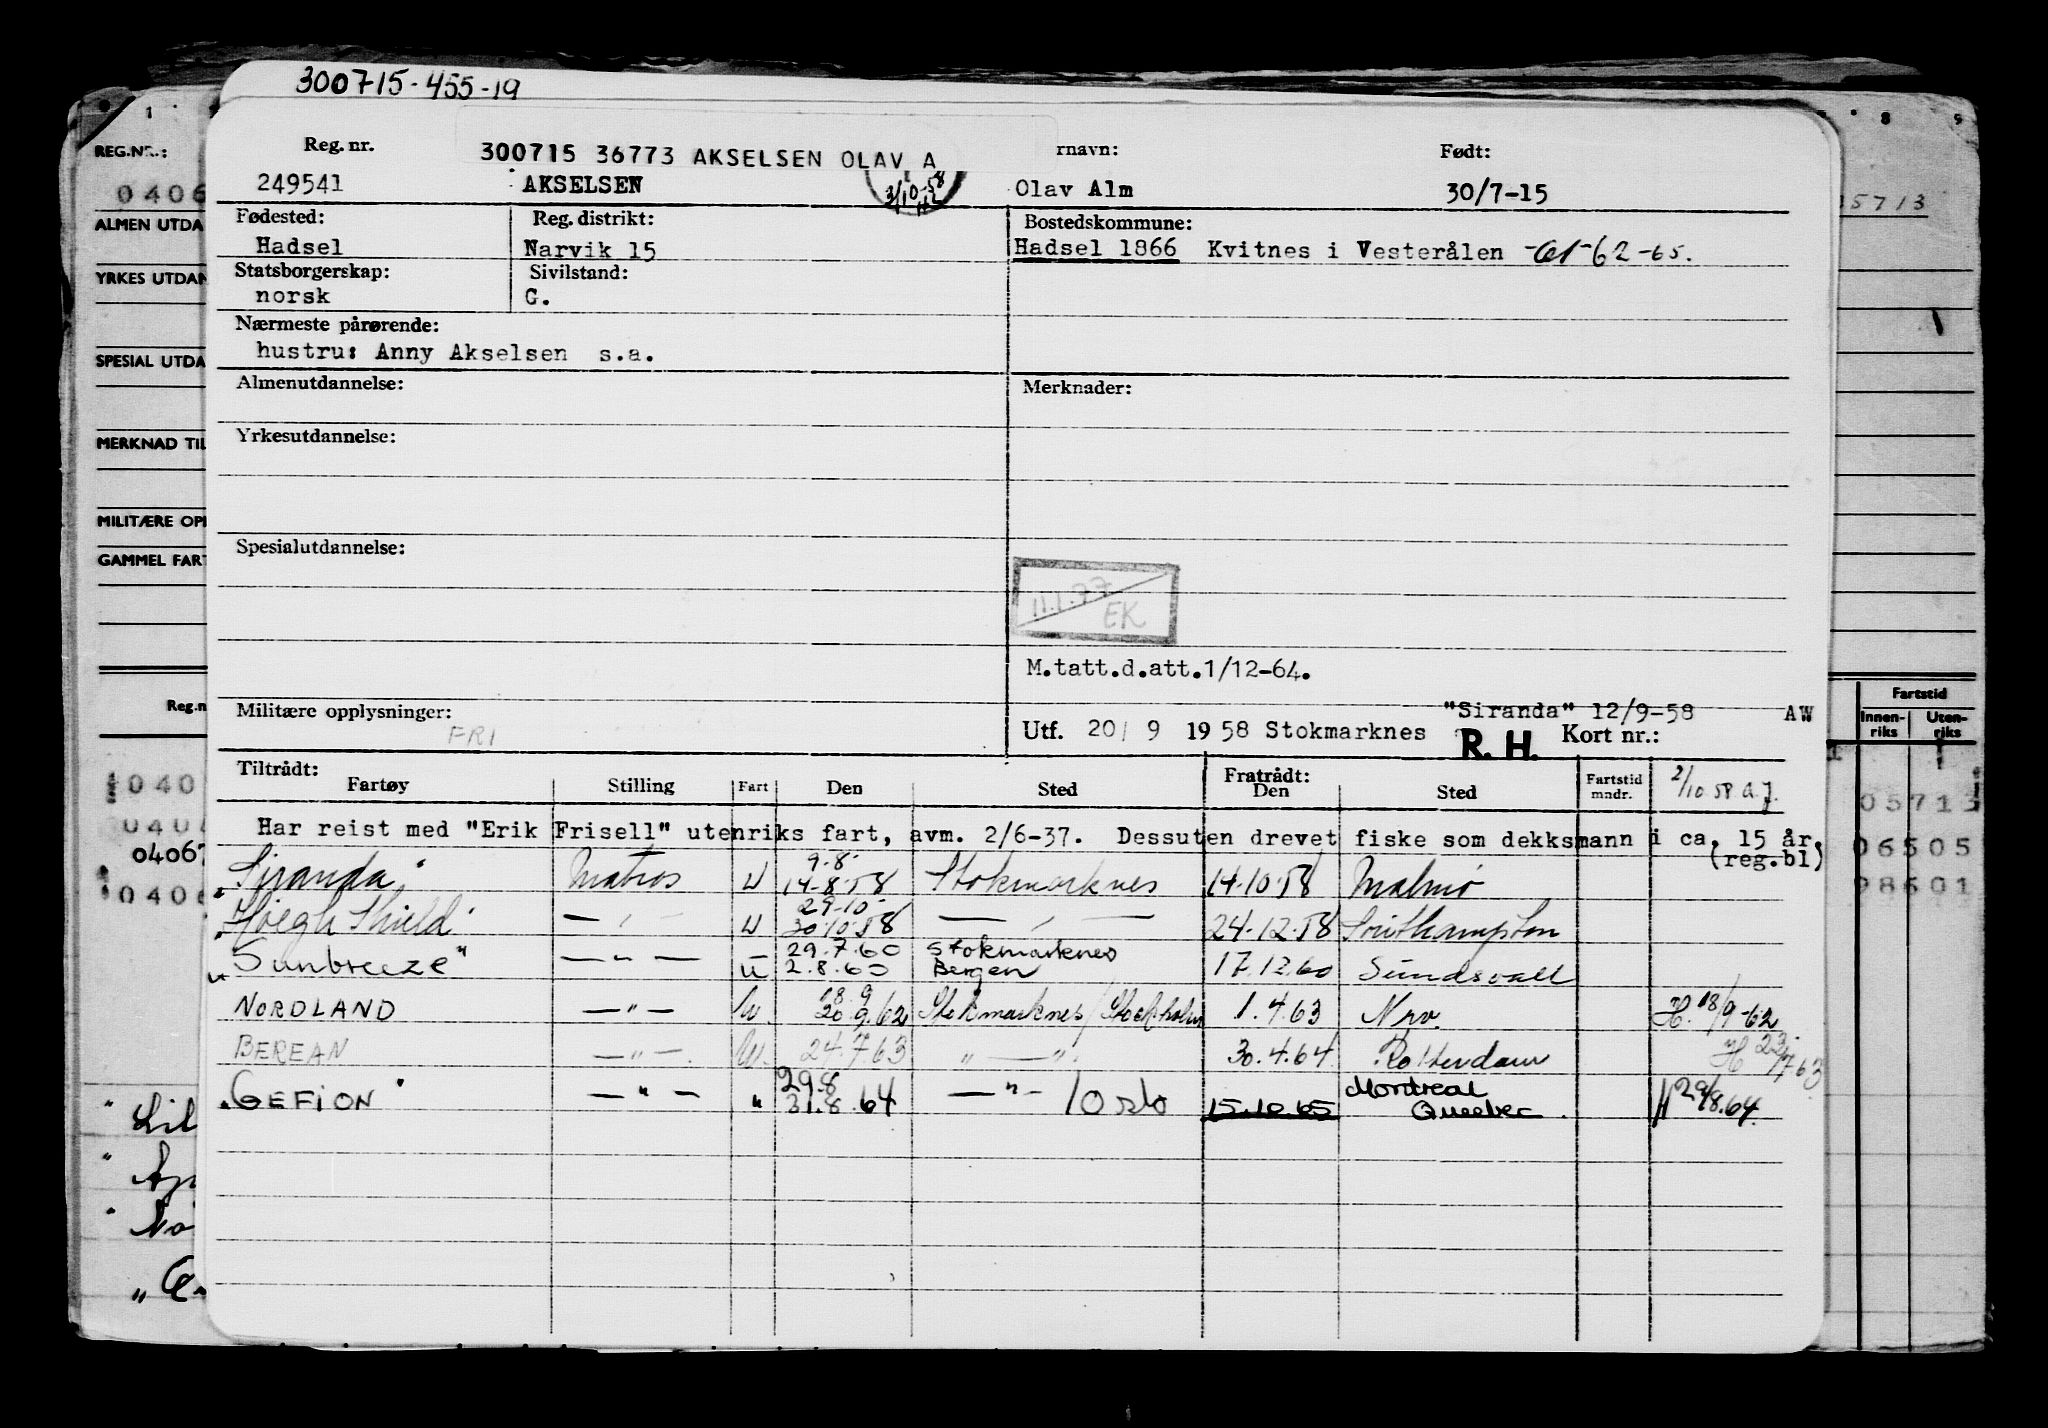 300715-455-19
REG.NR.:
ALMEN UTDA
YRKES UTDAN
SPESIAL UTDA
MERKNAD TIL
MILITÆRE OPP
GAMMEL FART
Reg.n
Reg. nr. 300715 36773 AKSELSEN OLAV A rnavn: Født:
249541 AKSELSEN 3/10-58 Olav Alm 30/7-15
Fødested: Reg. distrikt: Bostedskommune:
Hadsel Narvik 15 Hadsel 1866 Kvitnes i Vesterålen -61-62-65.
Statsborgerskap: Sivilstand:
norsk G.
Nærmeste pårørende:
hustru: Anny Akselsen s.a.
Almenutdannelse: Merknader:
Yrkesutdannelse:
Spesialutdannelse:
11.1.77
EK
M.tatt.d.att.1/12-64.
Militære opplysninger: "Siranda" 12/9-58 AW
FRI Utf. 20/ 9 1958 Stokmarknes R. H. Kort nr.:
Tiltrådt: Fratrådt:
Fartøy Stilling Fart Den Sted Den Sted Fartstid mndr. 2/10 58 A.J.
Har reist med "Erik Frisell" utenriks fart, avm. 2/6-37. Dessuten drevet fiske som dekksmann i ca. 15 år.
(reg.bl)
9.8
"Siranda" Matros U 14-8-58 Stokmarknes 14-10-58 Malmö
29-10
"Høegh Shield" — " — U 30-10-58 — " — 24-12-58 Southampton
29.7.60 Stokmarknes
"Sunbreeze" — " — U 2.8.60 Bergen 17.12.60 Sundsvall
18.9
NORDLAND — " — U. 20.9.62 Stokmarknes/Stockholm 1.4.63 Nrv. H. 18/9-62
BEREAN — " —. U. 24.7.63 " — ". 30.4.64 Rotterdam H 23/7-63
29.8 Montreal
"GEFION" — " — " 31.8.64 — " — / Oslo 15.10.65 Quebec. H 29/8.64
Fartstid
Innen-riks Uten-riks
05713
06505
08601